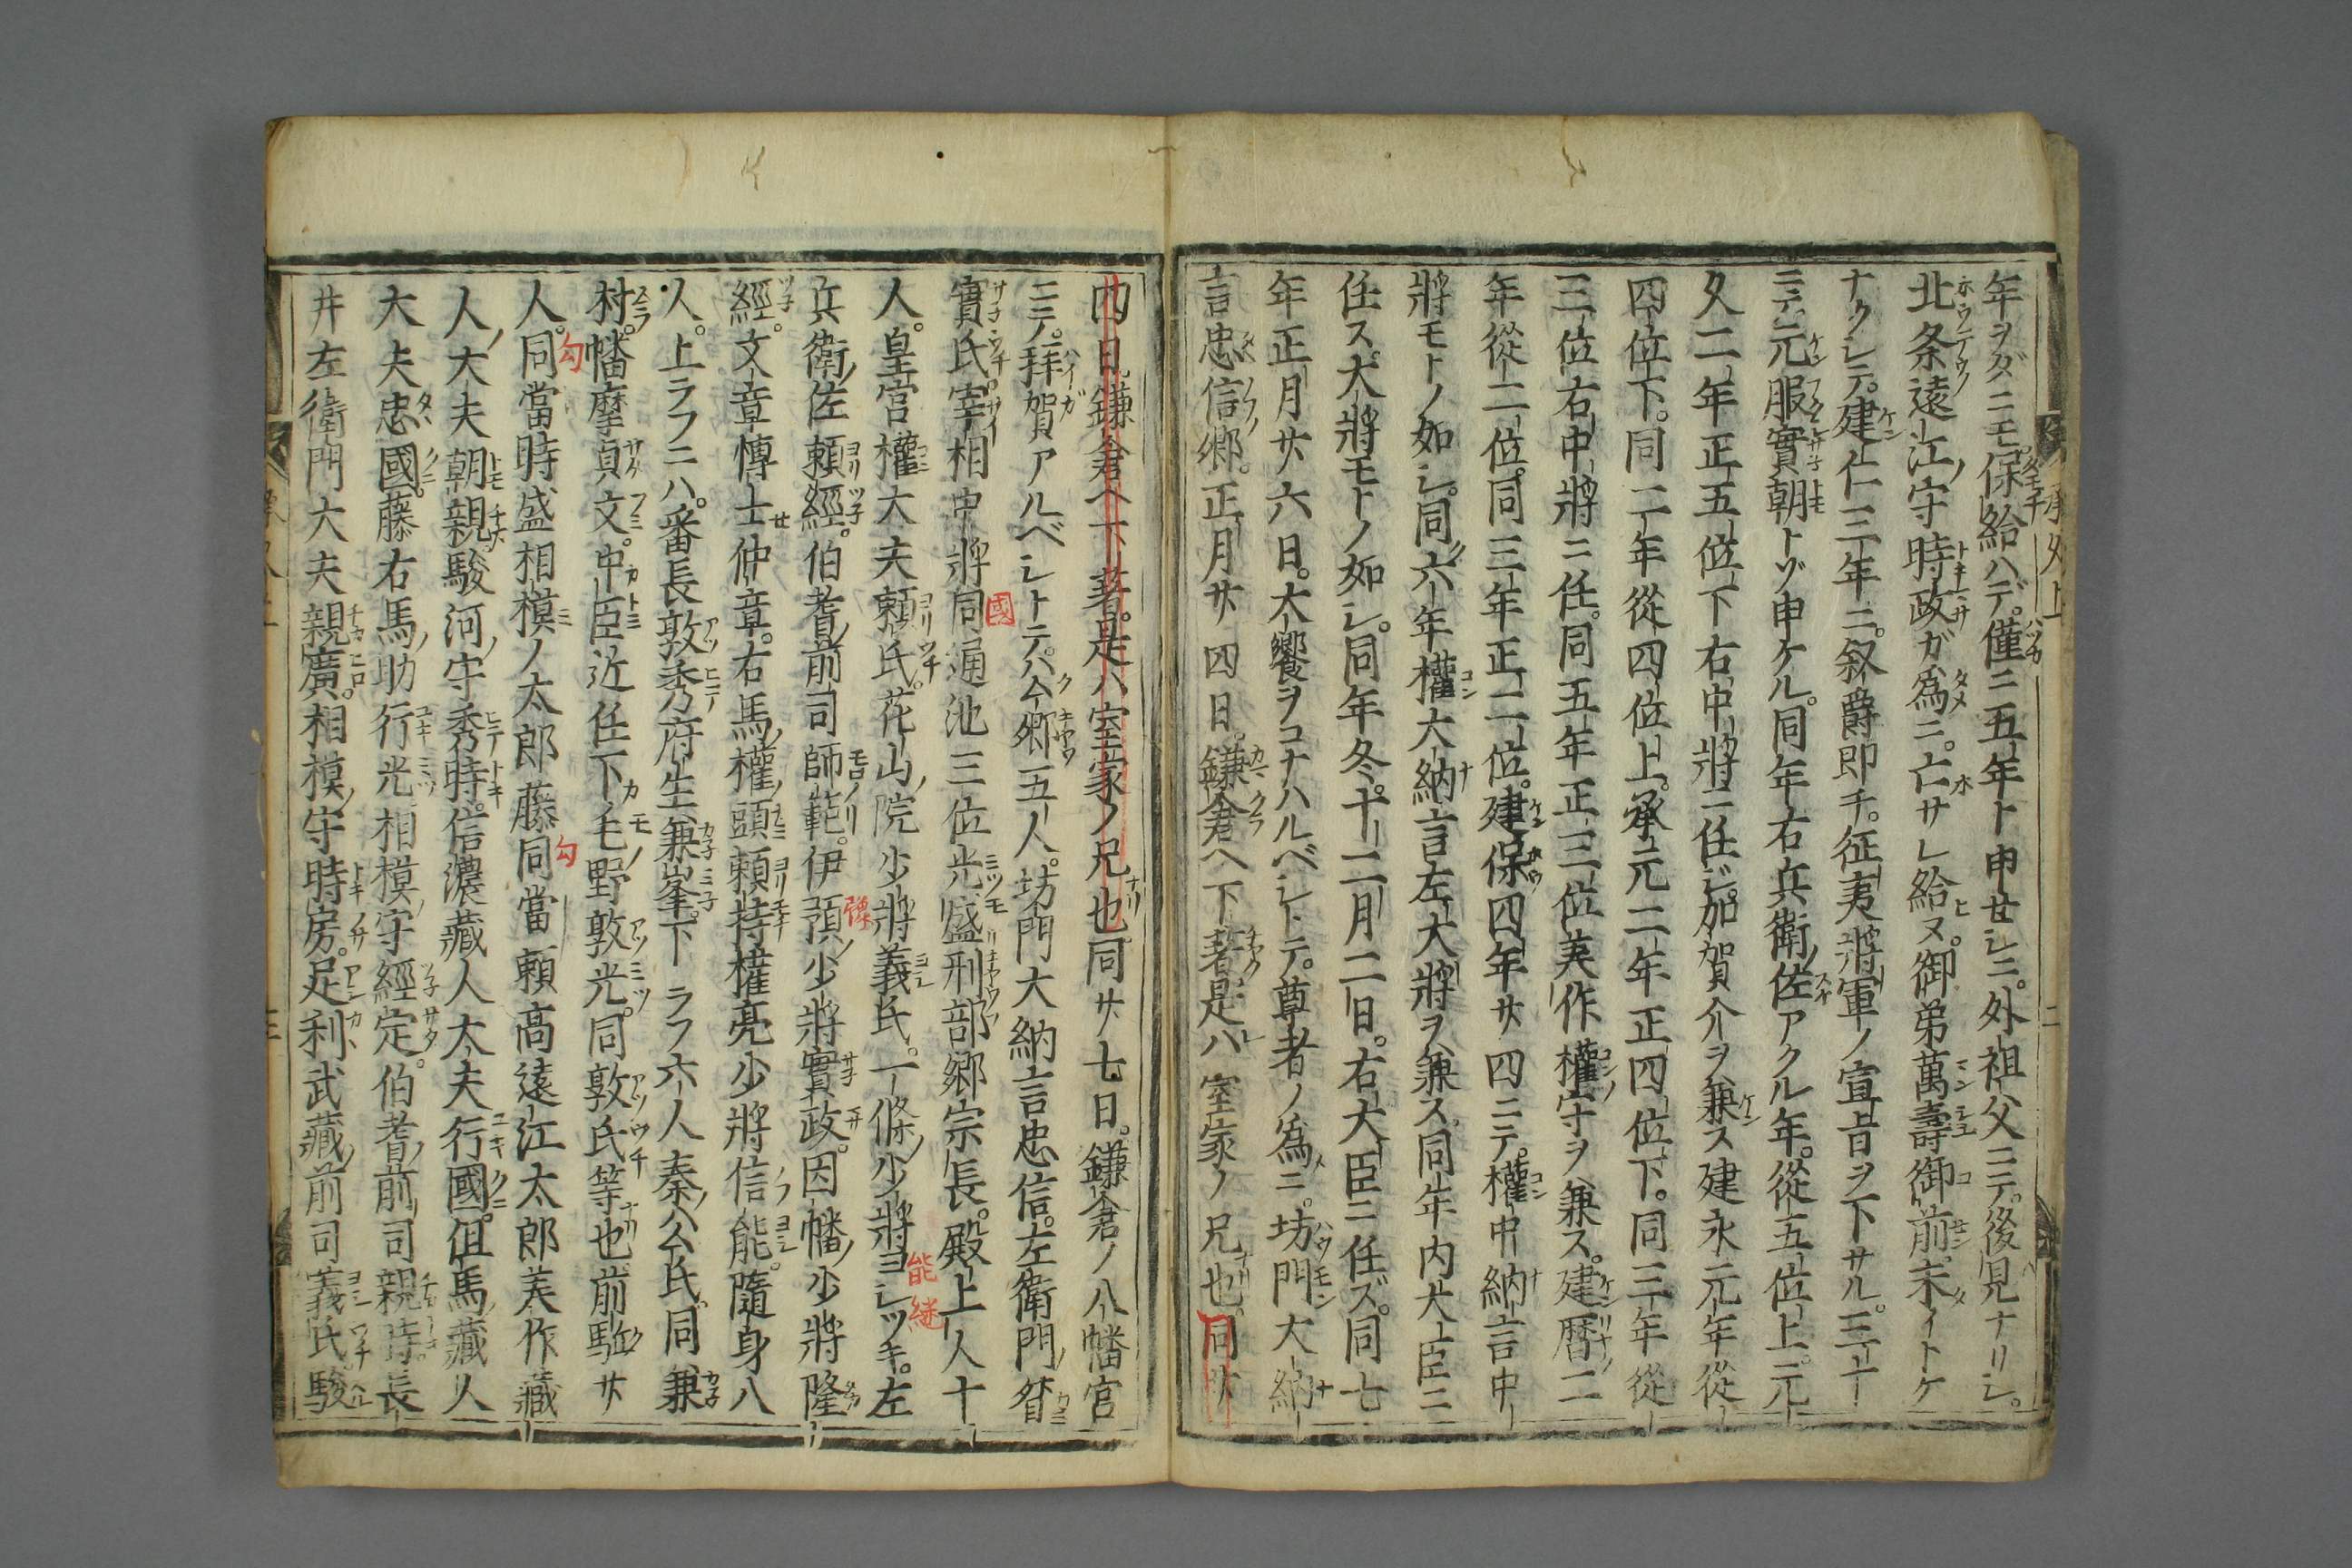 年ヲダニモ。保給ハデ。僅ニ五年ト申セシニ。外祖父ニテ。後見ナリシ。
北条遠江ノ守時政ガ為ニ。亡サレ給ヌ。御弟萬壽御前。未イトケ
ナクシテ。建仁三年ニ。叙爵即チ。征夷將軍ノ宣旨ヲ下サル。三十一
ニテ。元服實朝トゾ申ケル。同年右兵衛ノ佐アクル年。從五位上。元
久二年正五位下右中將ニ任ジ。加賀介ヲ兼ス建永元年從
四位下。同二年從四位上。承元二年正四位下。同三年從
三位右中將ニ任。同五年正三位美作權守ヲ兼ス。建暦二
年從二位。同三年正二位。建保四年廿四ニテ。權中納言中
將モトノ如シ。同六年權大納言左大將ヲ兼ス。同年内大臣ニ
任ス。大將モトノ如シ。同年冬。十二月二日。右大臣ニ任ズ。同七
年正月廿六日。大饗ヲコナハルベシトテ。尊者ノ為ニ。坊門大納
言忠信郷。正月廿四日。鎌倉ヘ下著是ハ室家ノ兄也。同廿
四日。鎌倉ヘ下著。是ハ室家ノ兄也。同廿七日。鎌倉ノ八幡宮
ニテ。拝賀アルベシトテ。ハ公卿五人。坊門大納言忠信。左衛門ノ督
實氏。宰相中將同國通池三位光盛刑部郷宗長。殿上人十
人。皇宮權大夫頼氏。花山ノ院少將義氏。一條ノ少將ヨシツキ。左能継
兵衛ノ佐頼經。伯耆ノ前司師範。伊預ノ少將實政。因幡ノ少將隆豫
經。文章博士仲章。右馬ノ權ノ頭頼持權亮少將信能。隨身八
人。上ラフニハ。番長敦秀府生兼峯。下ラフ六人秦ノ公氏同兼
村。幡摩貞文。中臣近任下毛野敦光。同敦氏等也。前駈廿
人。同勾當時盛相模ノ太郎藤同勾當頼高遠江太郎美作藏
人大夫朝親。駿河ノ守秀時。信濃藏人大夫行國。伹馬藏人
大夫忠國。藤右馬ノ助行光相模ノ守經定。伯耆ノ前司親時。長
井左衛門大夫親廣。相模ノ守時房。足利武藏ノ前司義氏駿